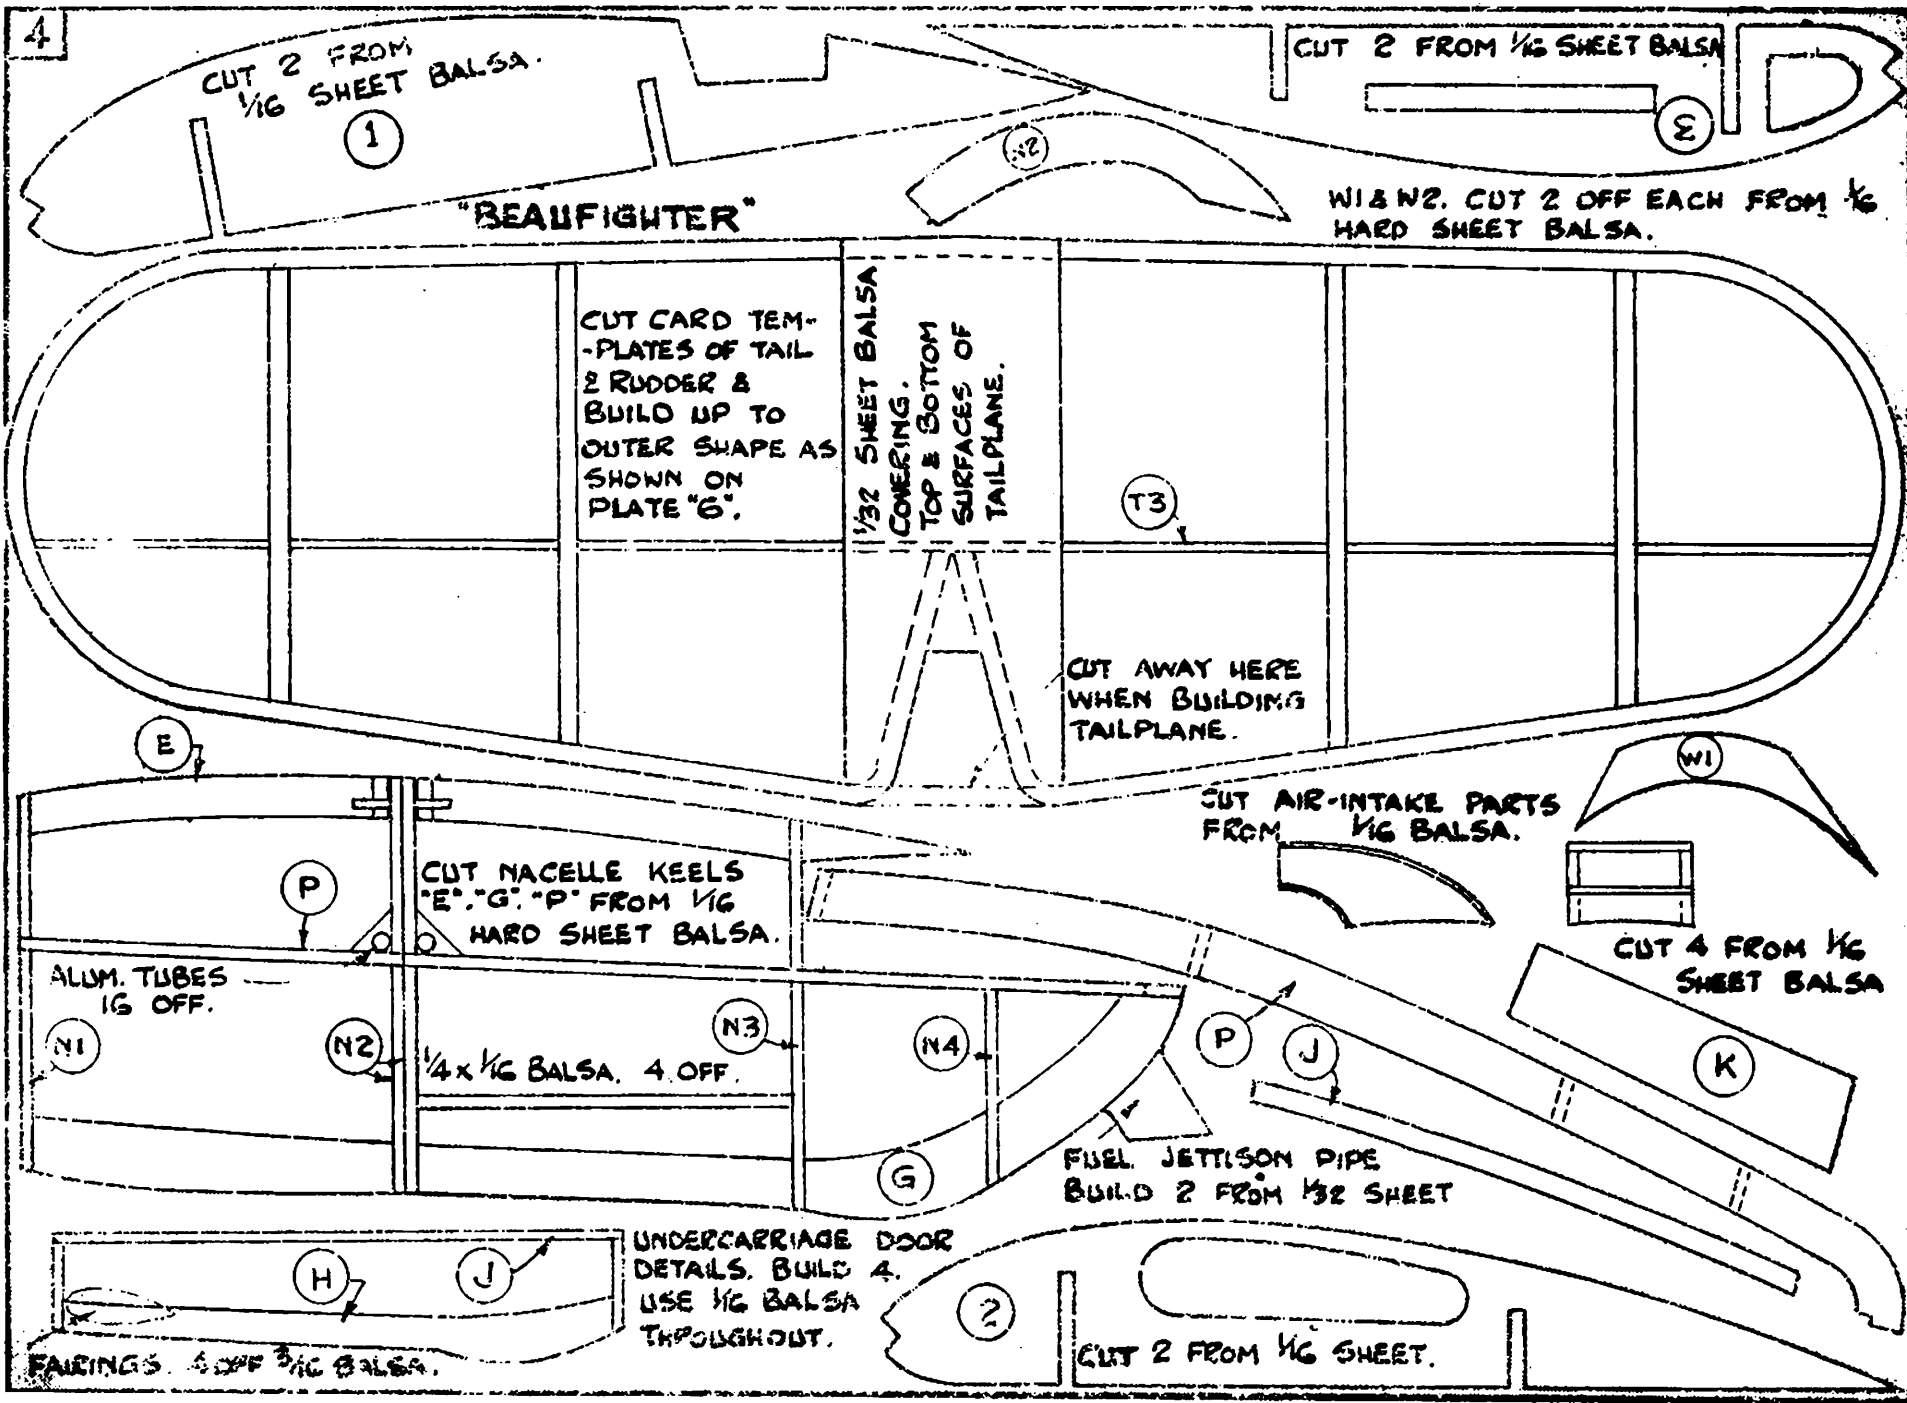 4
CUT 2 FROM
1/16 SHEET BALSA.
1
CUT 2 FROM 1/16 SHEET BALSA
3
N2
"BEAUFIGHTER"
W1 & W2. CUT 2 OFF EACH FROM 1/16
HARD SHEET BALSA.
CUT CARD TEM-
-PLATES OF TAIL
& RUDDER &
BUILD UP TO
OUTER SHAPE AS
SHOWN ON
PLATE "6".
1/32 SHEET BALSA
COVERING.
TOP & BOTTOM
SURFACES OF
TAILPLANE.
T3
CUT AWAY HERE
WHEN BUILDING
TAILPLANE.
E
W1
CUT AIR-INTAKE PARTS
FROM 1/16 BALSA.
P
CUT NACELLE KEELS
"E". "G". "P" FROM 1/16
HARD SHEET BALSA.
ALUM. TUBES
16 OFF.
CUT 4 FROM 1/16
SHEET BALSA
N1
N2
1/4 x 1/16 BALSA. 4 OFF.
N3
N4
P
J
K
G
FUEL JETTISON PIPE
BUILD 2 FROM 1/32 SHEET
H
J
UNDERCARRIAGE DOOR
DETAILS. BUILD 4.
USE 1/16 BALSA
THROUGHOUT.
FAIRINGS. 4 OFF 3/16 BALSA.
2
CUT 2 FROM 1/16 SHEET.